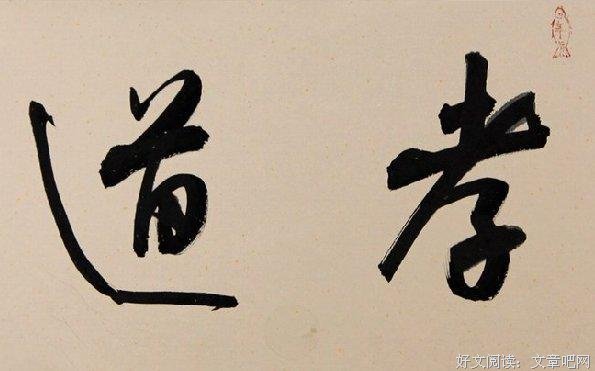 孝道
好文阅读：文章吧网